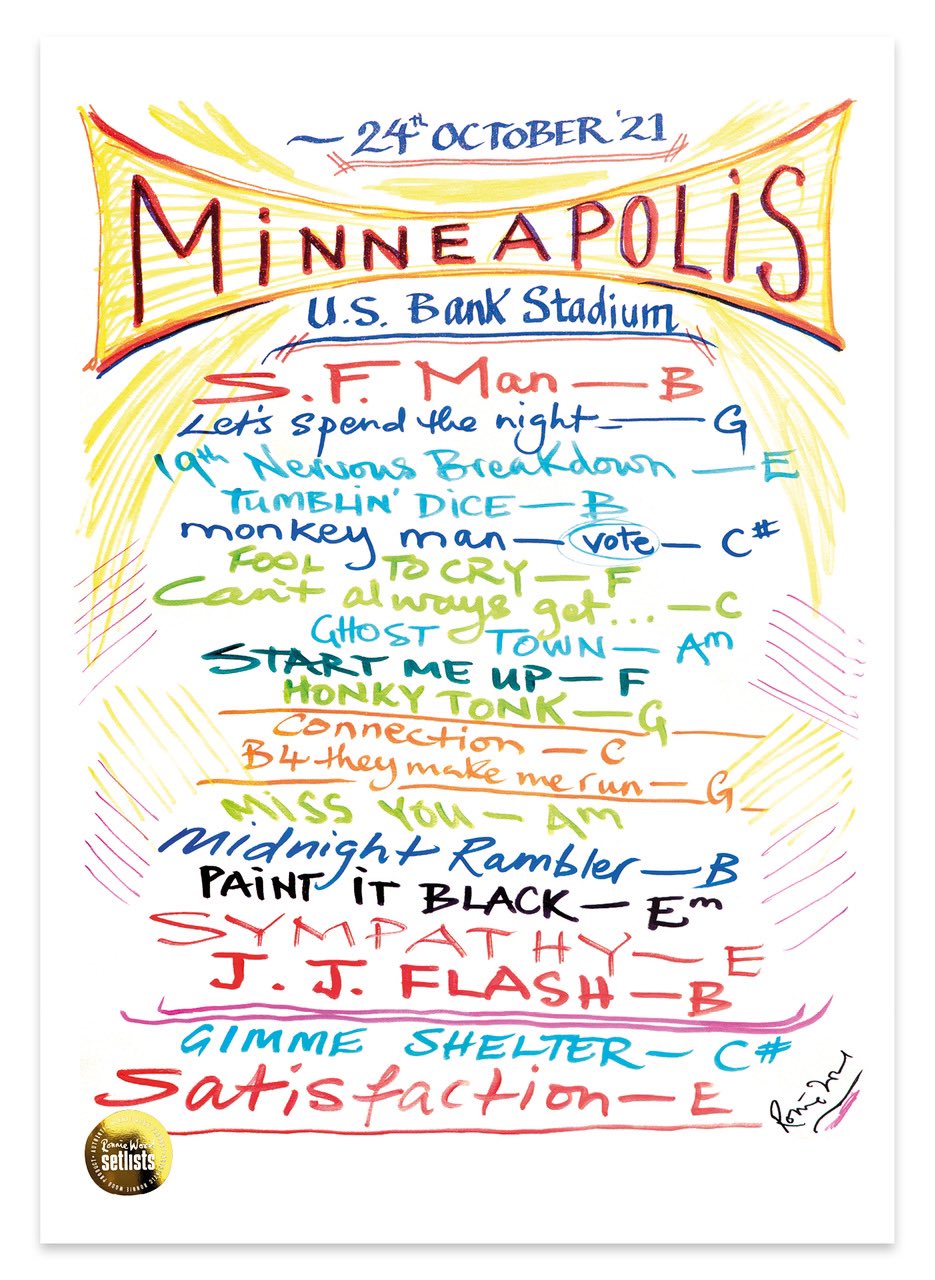 ~ 24th OCTOBER '21
MiNNEAPOLiS
U.S. Bank Stadium
S.F. Man — B
Let's spend the night — G
19th Nervous Breakdown — E
TUMBLIN' DiCE — B
monkey man — vote — C#
FOOL TO CRY — F
Can't always get... — C
GHOST TOWN — Am
START ME UP — F
HONKY TONK — G
Connection — C
B4 they make me run — G
MiSS YOU — Am
Midnight Rambler — B
PAiNT iT BLACK — Em
SYMPATHY — E
J.J. FLASH — B
GIMME SHELTER — C#
Satisfaction — E
Ronnie Wood
setlists